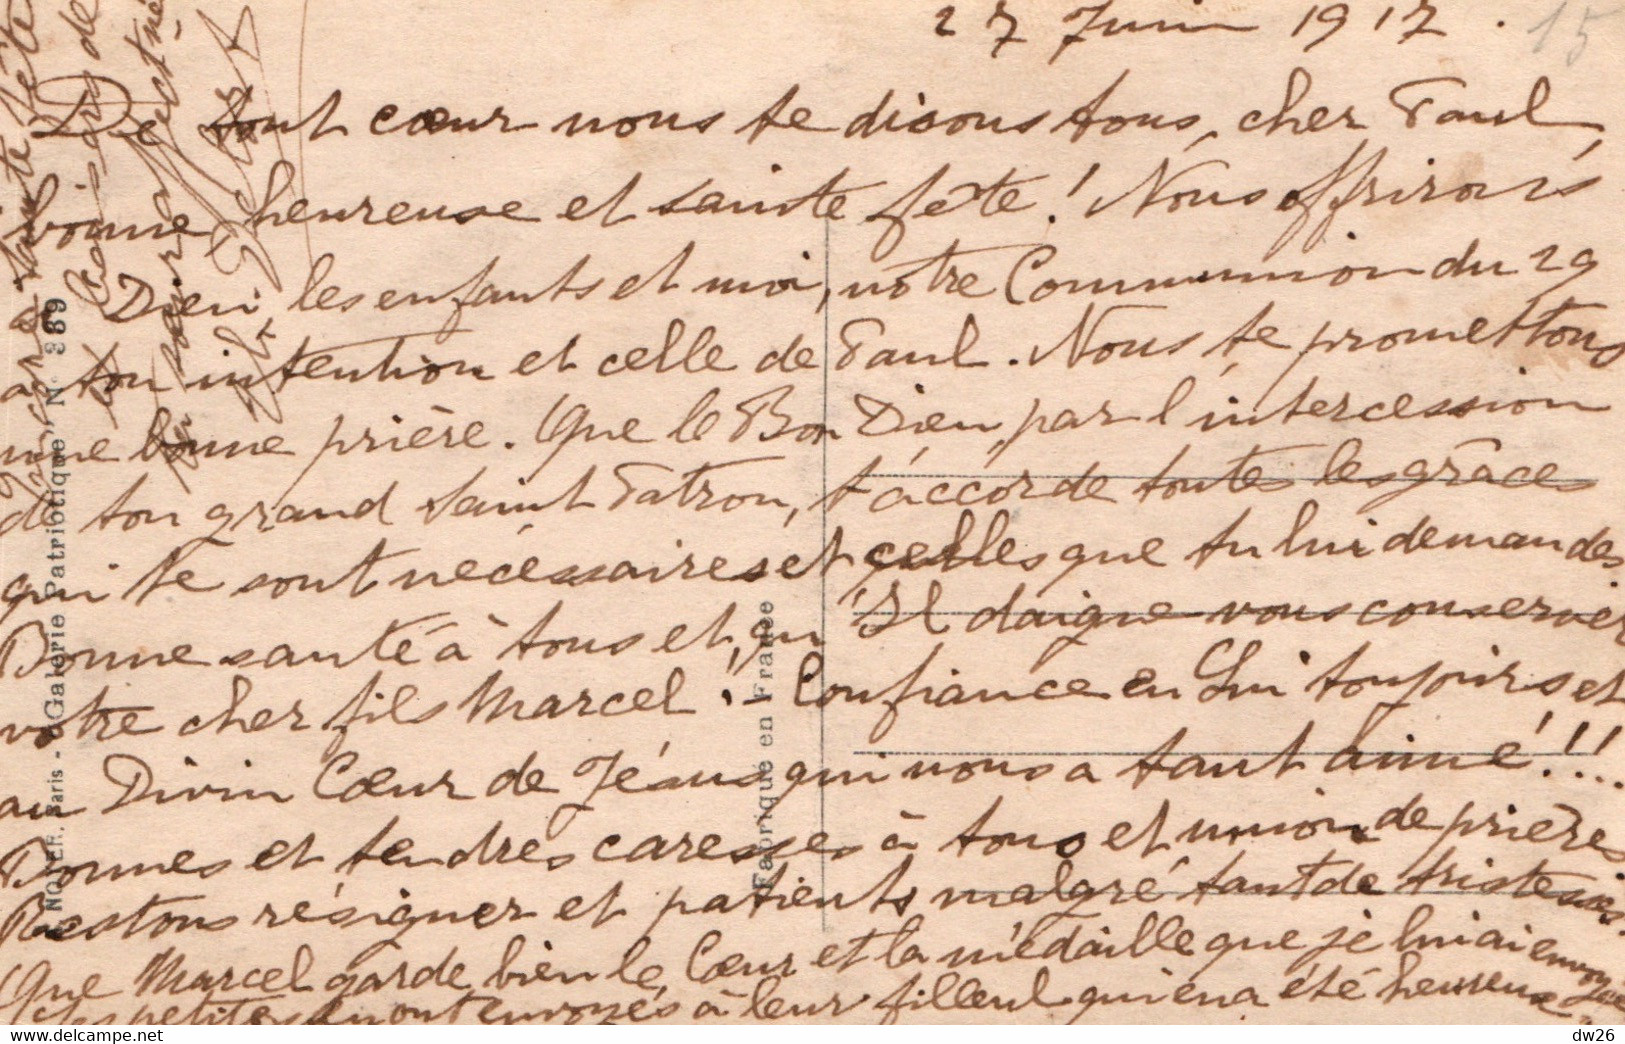 27 Juin 1917.
15
De tout cœur nous te disons tous, cher Paul,
bonne, heureuse et sainte fête! Nous offrirons
à Dieu, les enfants et moi, notre Communion du 29
à ton intention et celle de Paul. Nous te promettons
une bonne prière. Que le Bon Dieu, par l'intercession
de ton grand saint Patron, t'accorde toutes les grâces
qui te sont nécessaires et celles que tu lui demandes
Bonne santé à tous et qu'Il daigne vous conserver
votre cher fils Marcel. Confiance en Lui toujours et
au Divin Cœur de Jésus qui nous a tant aimé!!!..
Bonnes et tendres caresses à tous et union de prières
Restons résigner et patients malgré tant de tristesses.
Que Marcel garde bien le Cœur et la médaille que je lui ai envoyée
petites en ont envoyés à leur filleul qui en a été heureux
Encore Sainte fête
NOYER, Paris - "Galerie Patriotique" N° 369
Fabriqué en France
dw26